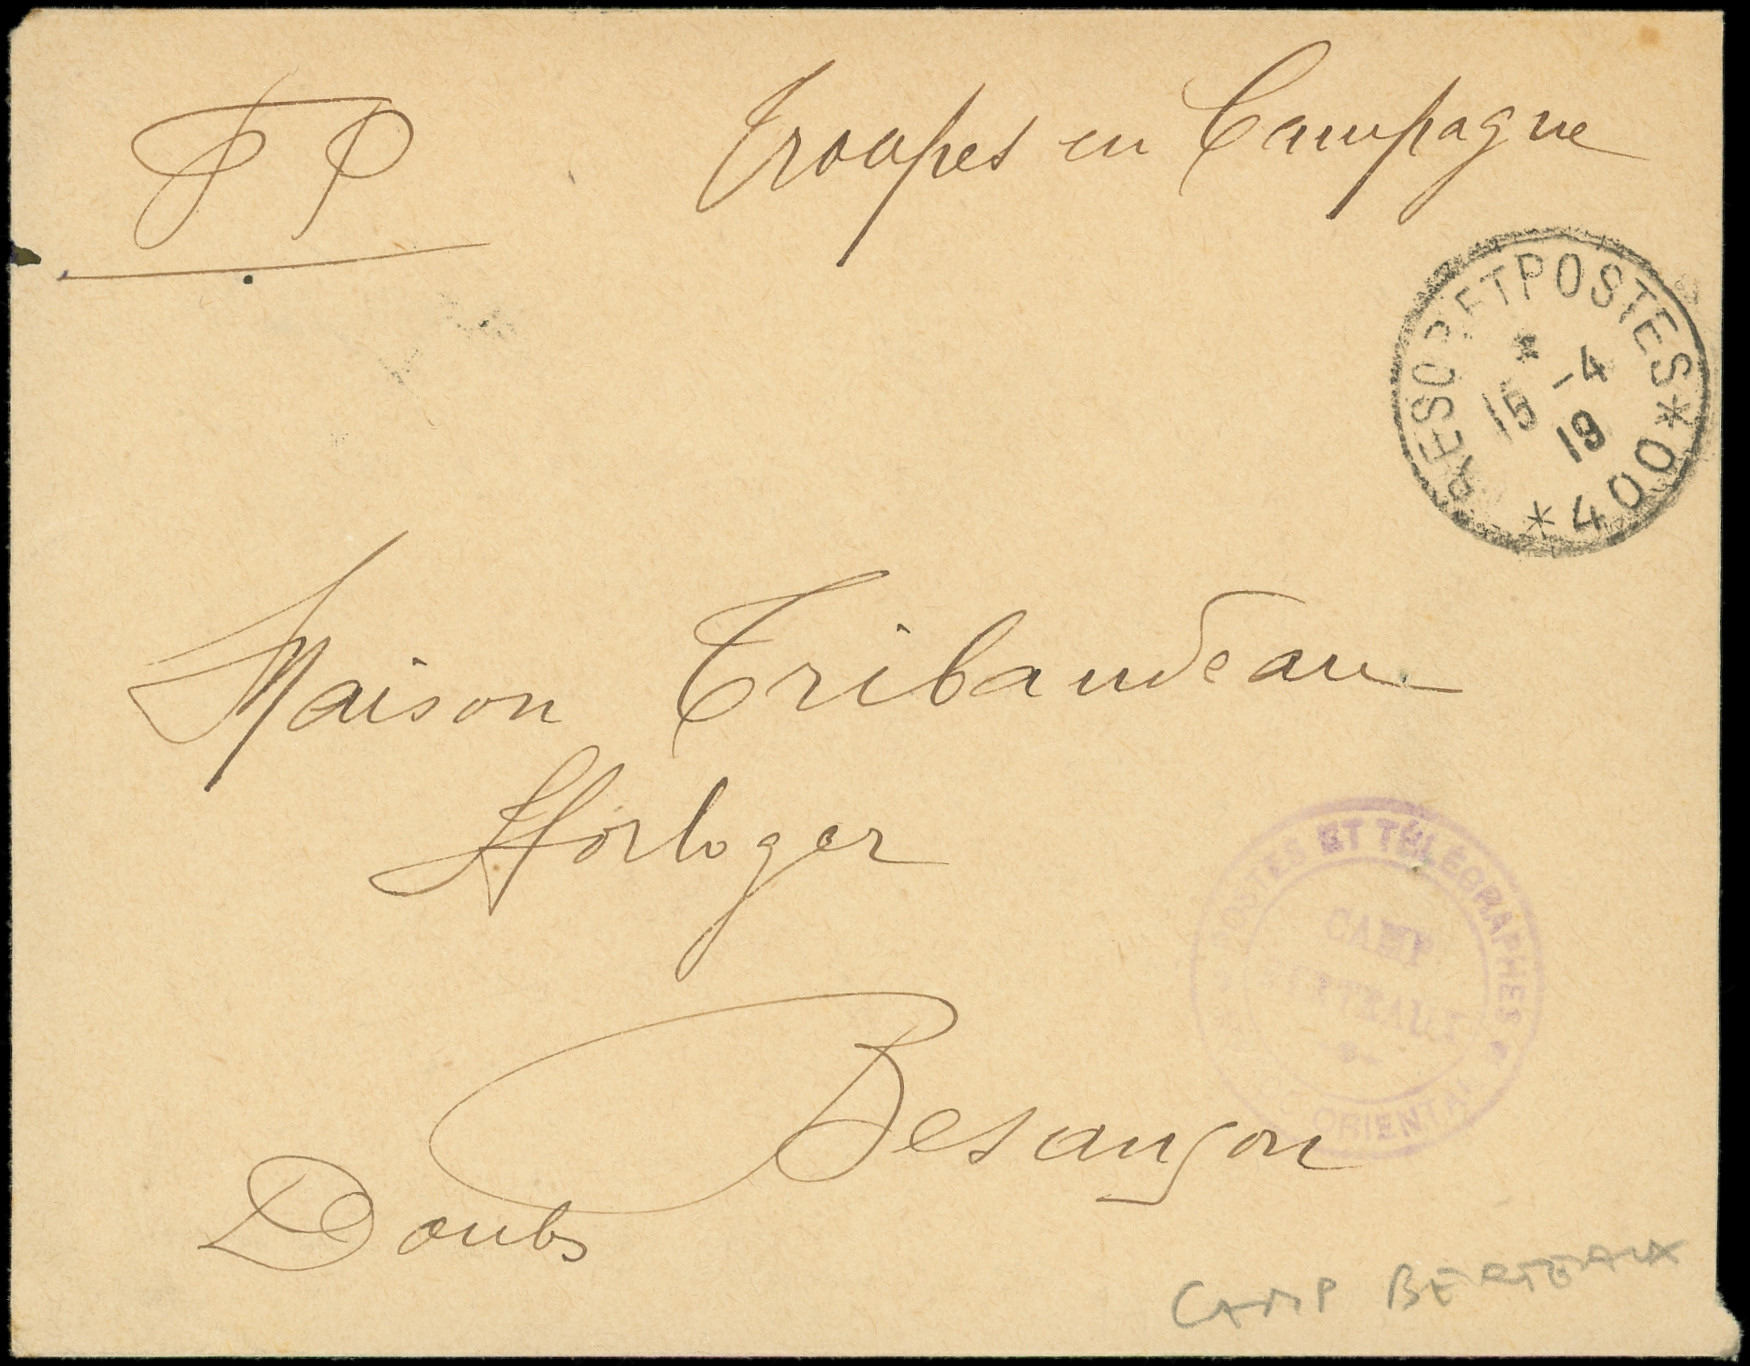 FP Troupes en Campagne
TRESOR ET POSTES * 400 *
*
15 -4
19
Maison Tribaudeau
Horloger
POSTES ET TÉLÉGRAPHES
CAMP
BERTEAUX
ORIENTAL
Besançon
Doubs
CAMP BERTEAUX